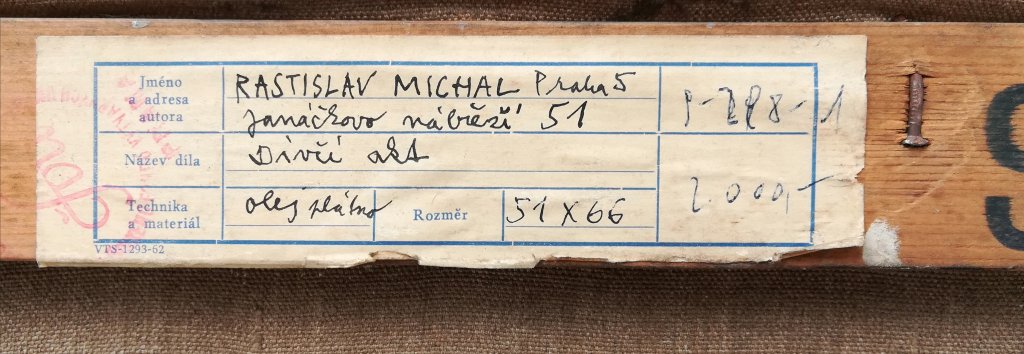 Jméno
a adresa
autora
RASTISLAV MICHAL Praha 5
Janáčkovo nábřeží 51
Název díla
Dívčí akt
Technika
a materiál
olej plátno
Rozměr
51 X 66
2.000,-
VTS-1293-62
S